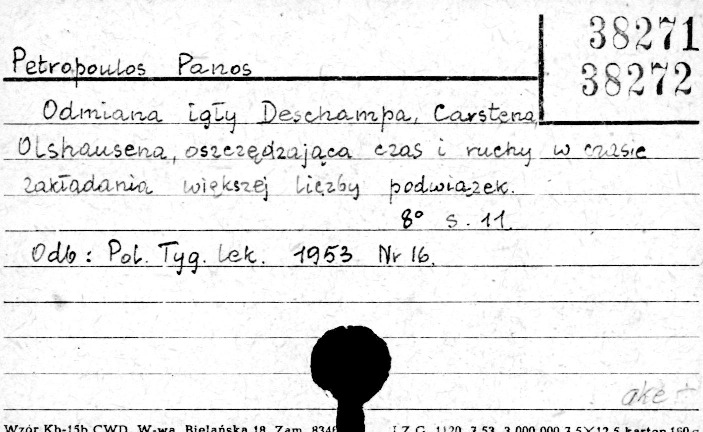 38271
Petropoulos Panos
38272
Odmiana igły Deschampa, Carstena
Olshausena, oszczędzająca czas i ruchy w czasie
zakładania większej liczby podwiązek.
8° s. 11.
Odb: Pol. Tyg. lek. 1953 Nr 16.
Wzór Kb-15b CWD, W-wa, Bielańska 18. Zam. 8346 I Z.G. 1120 3.53 3.000.000 7,5×12,5 karton 160 g